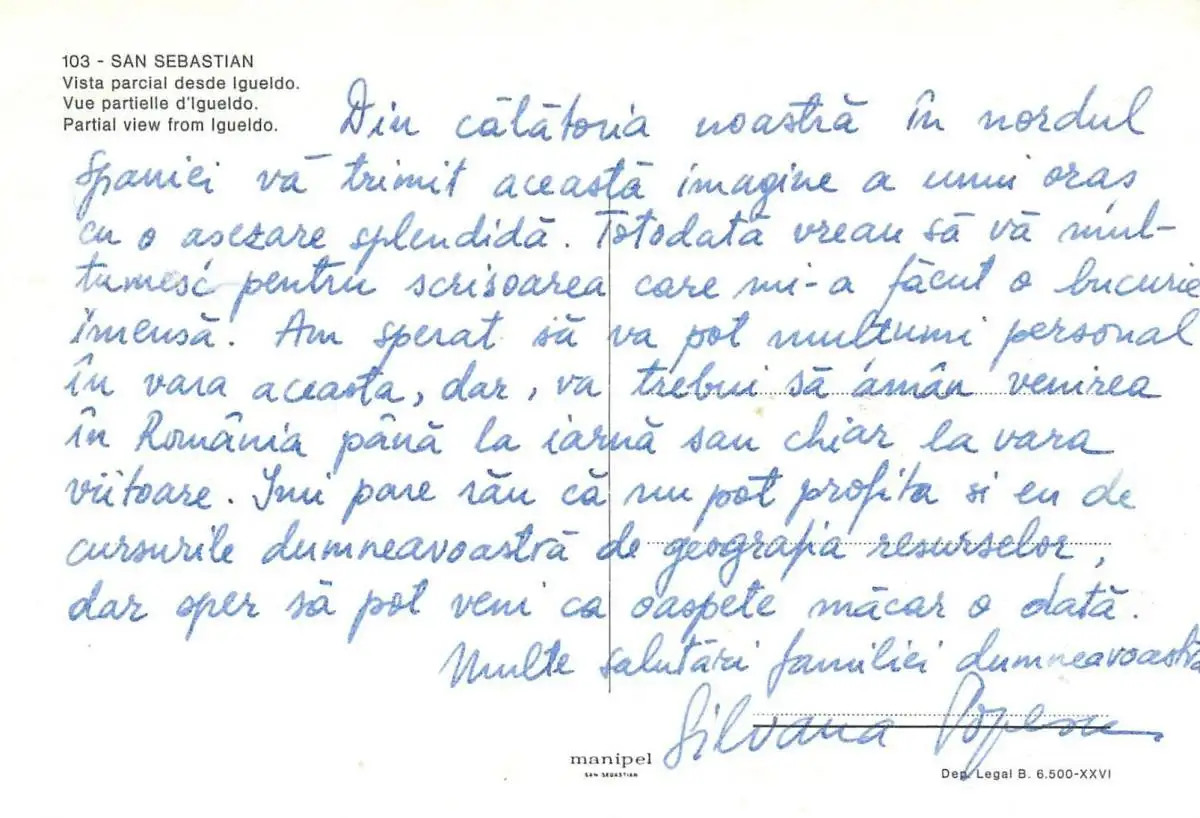 103 - SAN SEBASTIAN
Vista parcial desde Igueldo.
Vue partielle d'Igueldo.
Partial view from Igueldo.
Din călătoria noastră în nordul
Spaniei vă trimit această imagine a unui oras
cu o asezare splendidă. Totodată vreau să vă mul-
tumesc pentru scrisoarea care mi-a făcut o bucurie
imensă. Am sperat să va pot multumi personal
în vara aceasta, dar, va trebui să amân venirea
în România până la iarnă sau chiar la vara
viitoare. Imi pare rău că nu pot profita si eu de
cursurile dumneavoastră de geografia resurselor,
dar sper să pot veni ca oaspete măcar o dată.
Multe salutări familiei dumneavoastră
Silvana Popescu
manipel
SAN SEBASTIAN
Dep. Legal B. 6.500-XXVI